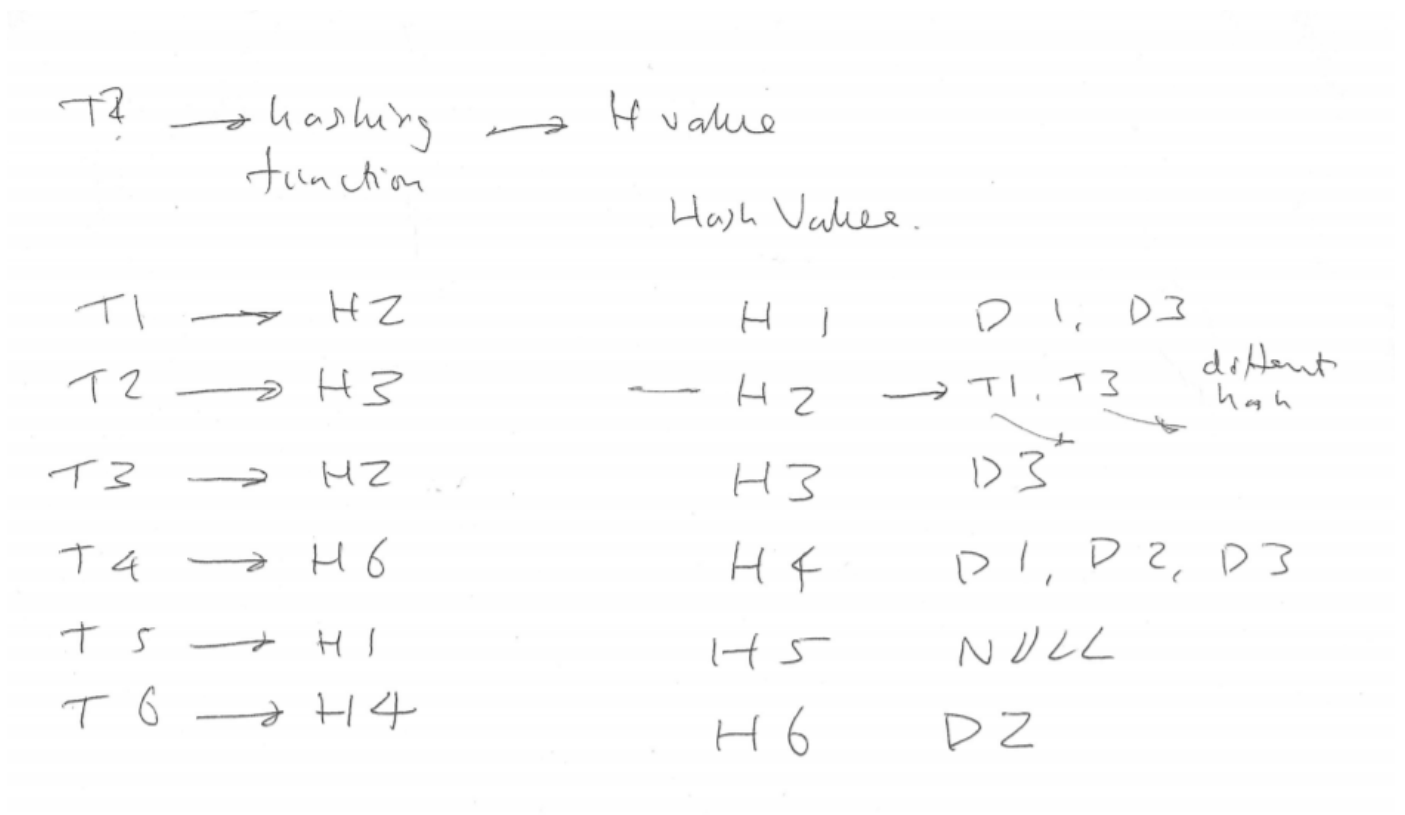 → hashing → H value
function
Hash Values.
T1 → H2
T2 → H3
T3 → H2
T4 → H6
T5 → H1
T6 → H4
H1 D1, D3
— H2 → T1, T3 different hash
H3 D3
H4 D1, D2, D3
H5 NULL
H6 D2